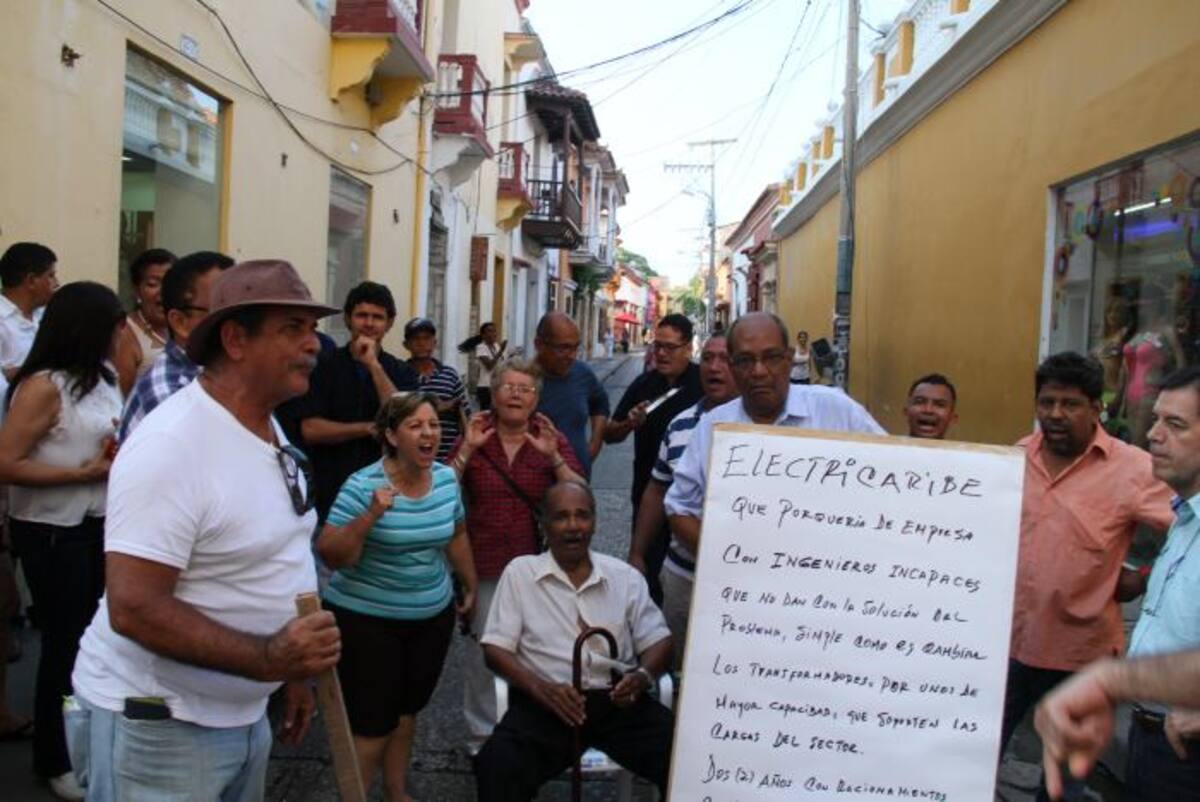 ELECTRICARIBE
QUE PORQUERIA DE EMPRESA
CON INGENIEROS INCAPACES
QUE NO DAN CON LA SOLUCIÓN DEL
PROBLEMA, SIMPLE COMO ES CAMBIAR
LOS TRANSFORMADORES, POR UNOS DE
MAYOR CAPACIDAD, QUE SOPORTEN LAS
CARGAS DEL SECTOR.
DOS (2) AÑOS CON RACIONAMIENTOS